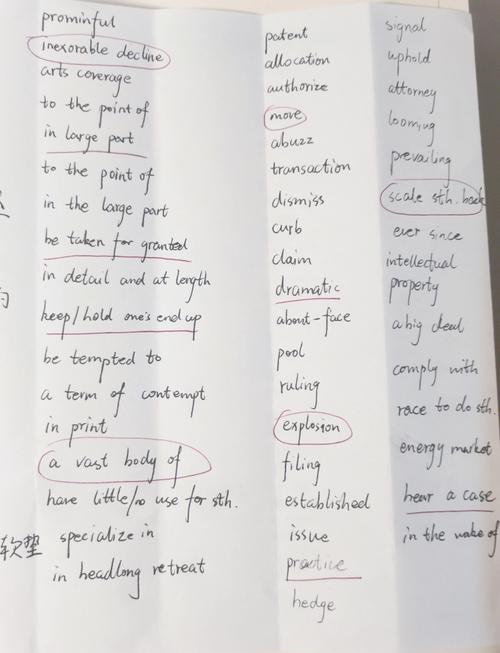 prominful
inexorable decline
arts coverage
to the point of
in large part
to the point of
in the large part
be taken for granted
in detail and at length
keep/hold one's end up
be tempted to
a term of contempt
in print
a vast body of
have little/no use for sth.
软垫 specialize in
in headlong retreat
patent
allocation
authorize
move
abuzz
transaction
dismiss
curb
claim
dramatic
about-face
pool
ruling
explosion
filing
established
issue
practice
hedge
signal
uphold
attorney
looming
prevailing
scale sth. back
ever since
intellectual
property
a big deal
comply with
race to do sth.
energy market
hear a case
in the wake of